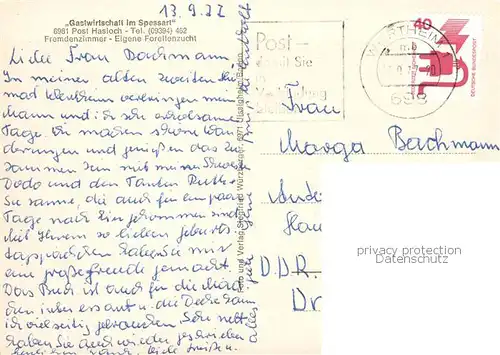 13.9.77
„Gastwirtschaft im Spessart"
6981 Post Hasloch - Tel. (09394) 452
Fremdenzimmer - Eigene Forellenzucht
Liebe Frau Bachmann!
In meiner alten zweiten Hei
mat verbringen mein
Mann und ich sehr erholsame
Tage. Wir machen schöne Wan
derungen und genießen das Zu
sammensein mit meiner Schwester
Dodo und den Tanten Ruth
Susanne, die auch für ein paar
Tage nach hier gekommen sind.
Mit Ihrem so lieben Geburts
tagspäckchen haben Sie mir
eine große Freude gemacht.
Das Buch ist auch für die Mäd
chen interessant u. die Decke kann
ich vielseitig gebrauchen. Sehr nett
haben Sie auch wieder geschrieben
Post –
damit Sie
in
Verbindung
bleiben
WERTHEIM
698
40
DEUTSCHE BUNDESPOST
Frau
Marga Bachmann
D.D.R.
Dr
Foto und Verlag Siegfried Würzberger,
privacy protection
Datenschutz